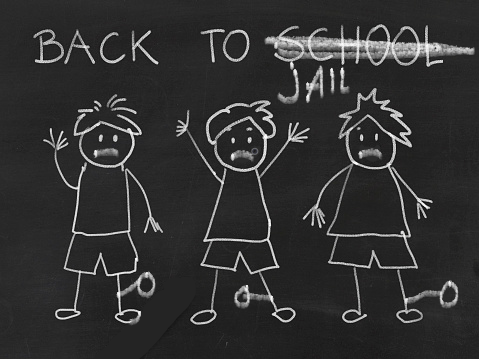 BACK TO SCHOOL
JAIL